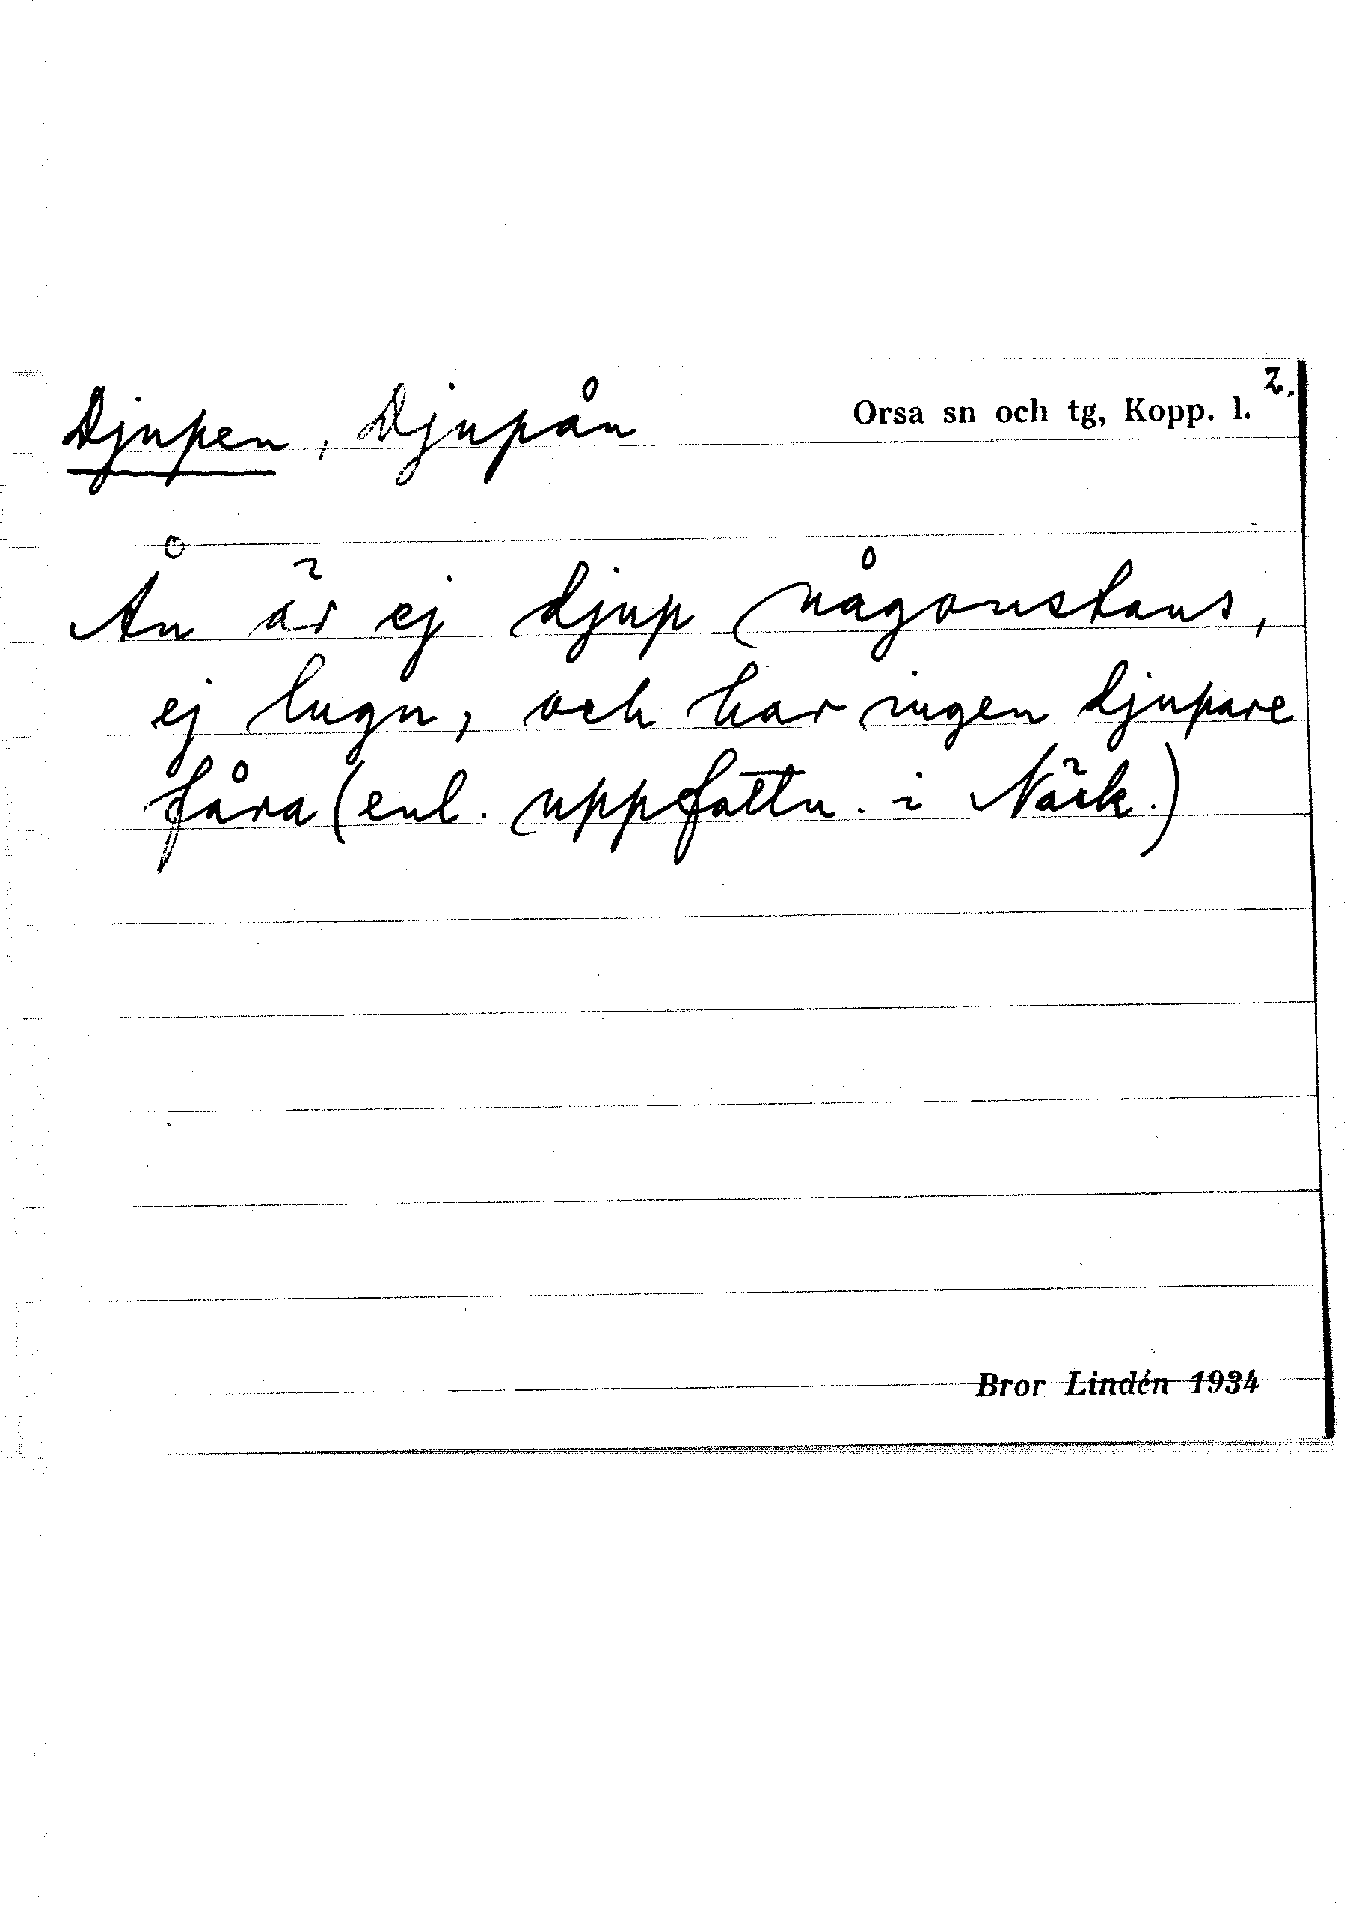 2.
Djupen, Djupån Orsa sn och tg, Kopp. l.
Ån är ej djup någonstans,
ej lugn, och har ingen djupare
fåra (enl. uppfattn. i Näck.)
Bror Lindén 1934